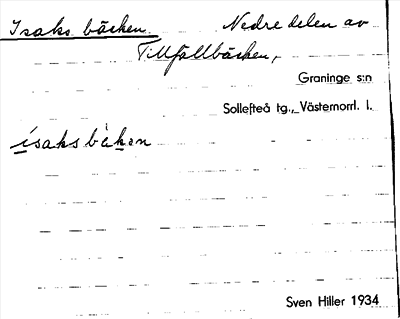 Isaks bäcken. Nedre delen av
Tillfällbäcken,
Graninge s:n
Sollefteå tg., Västernorrl. l.
ísaksbäken
Sven Hiller 1934